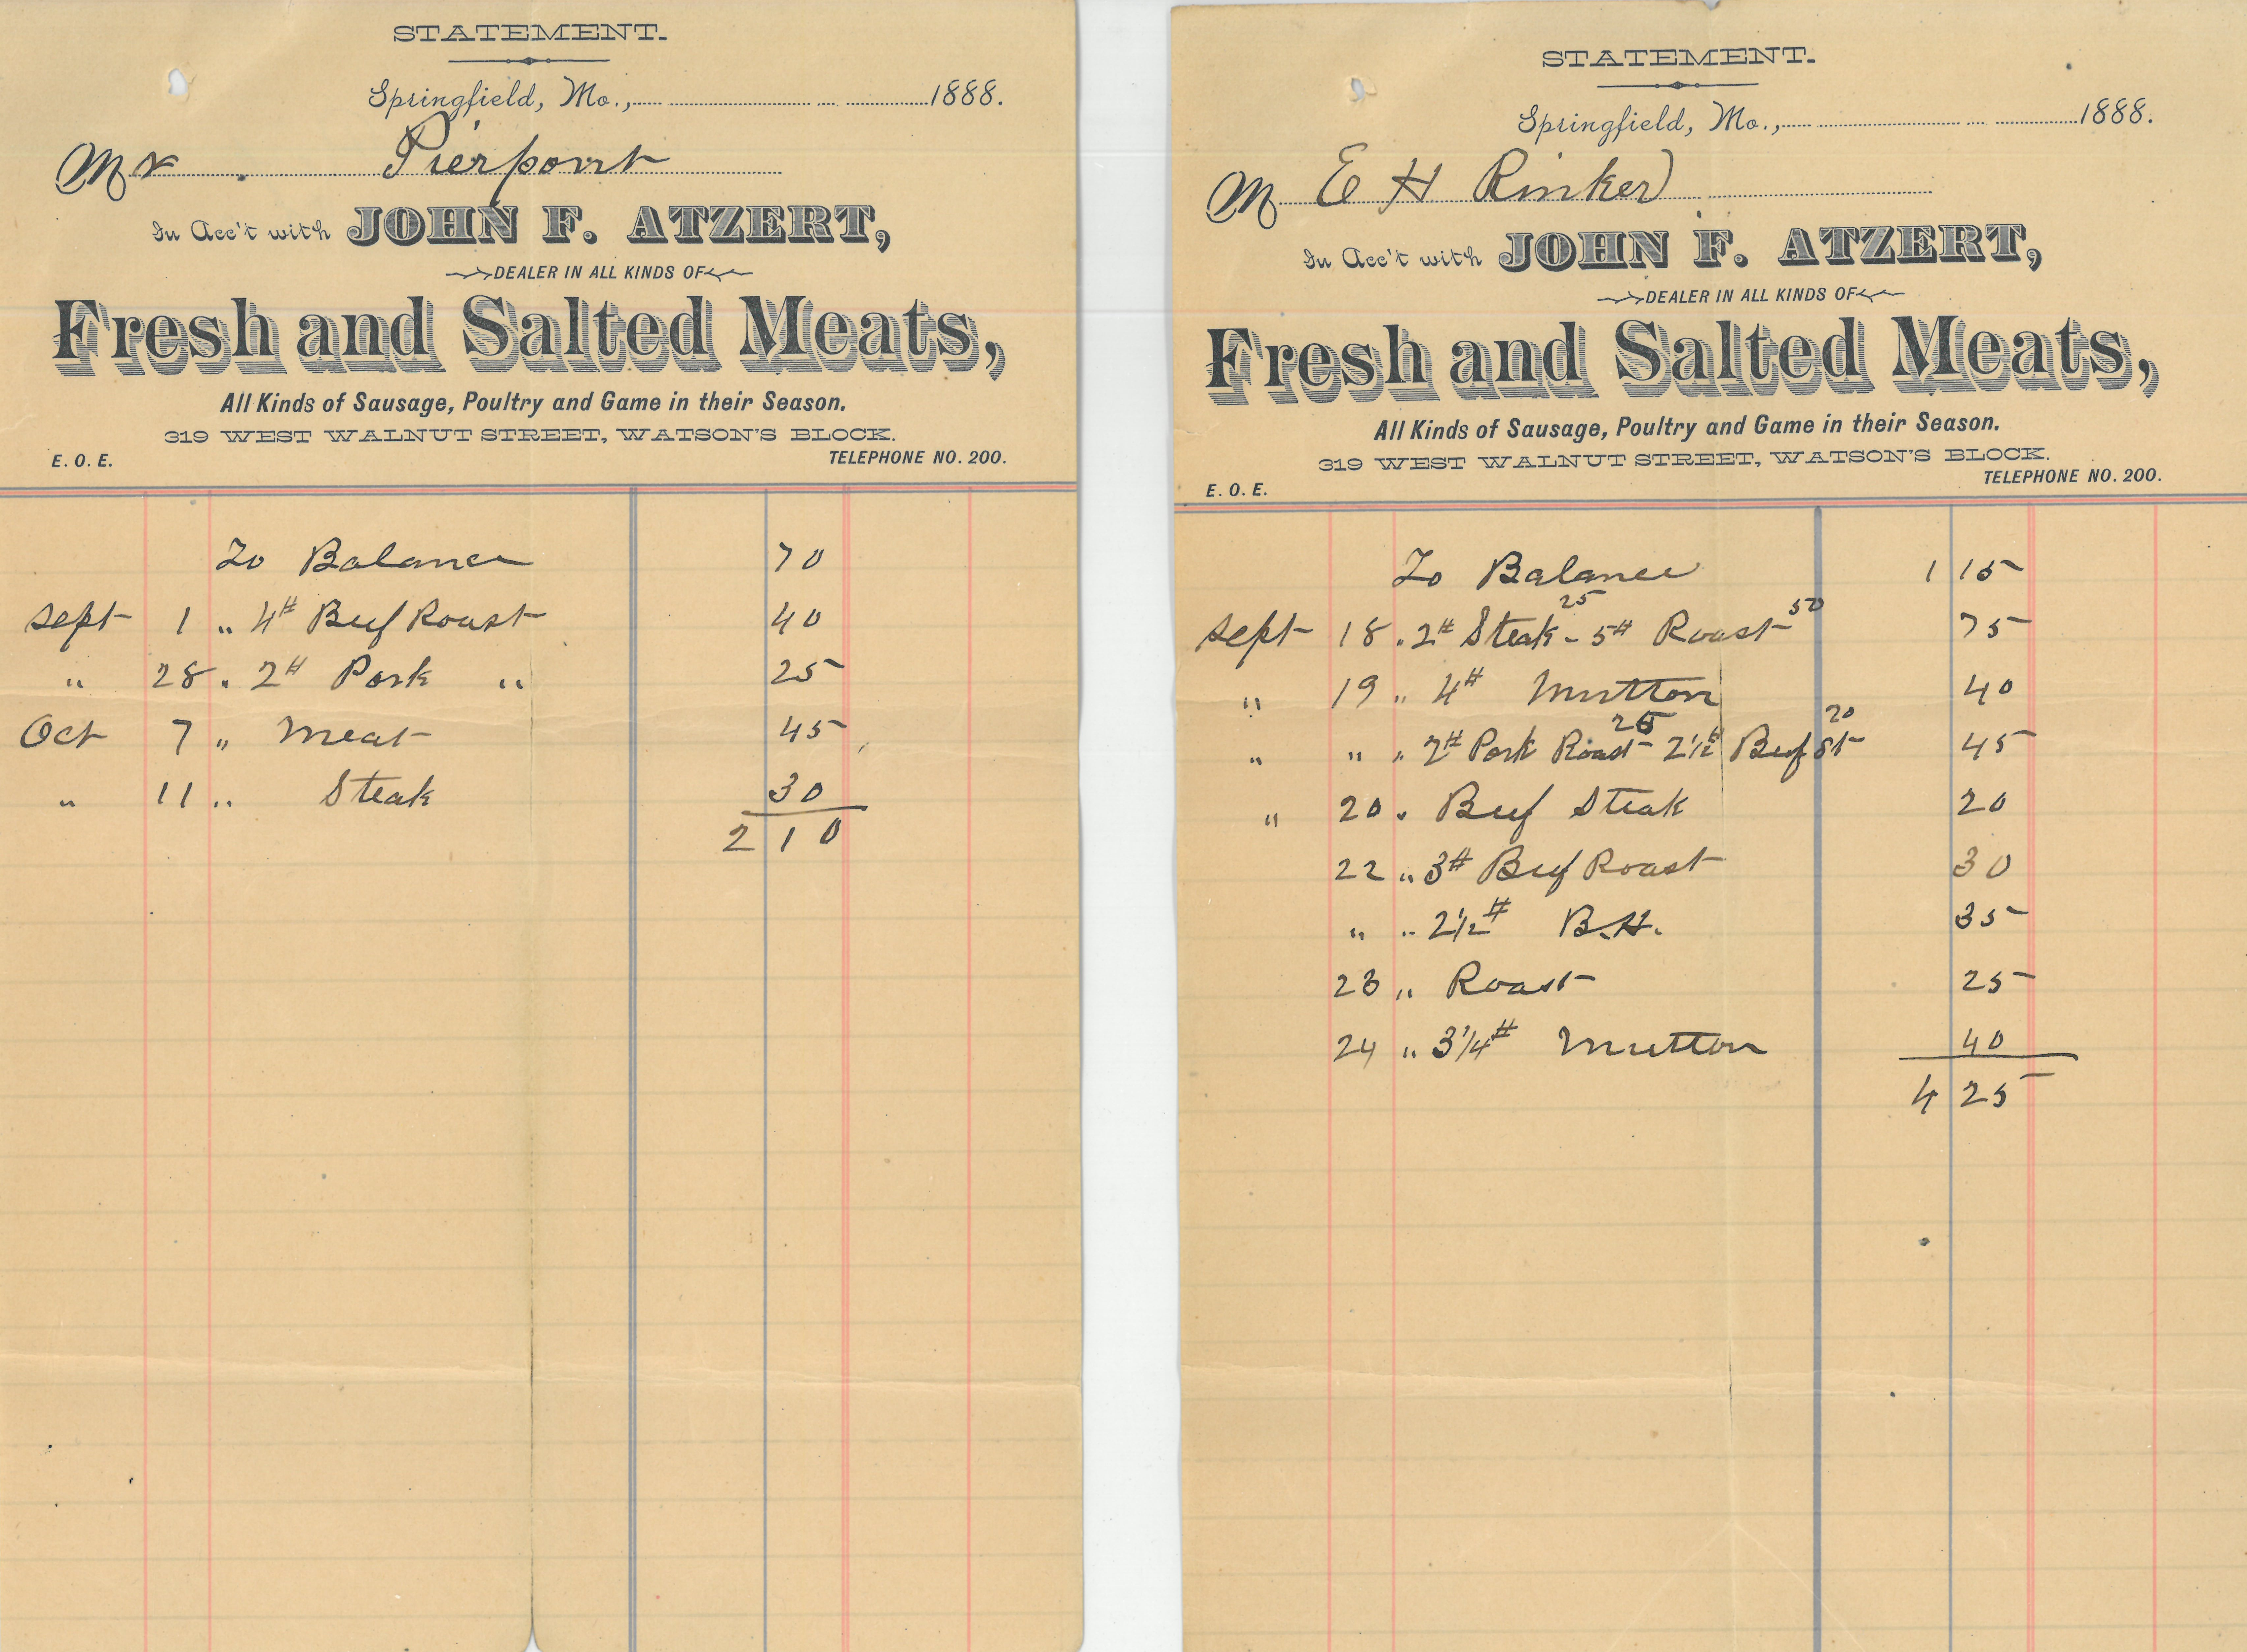 STATEMENT.
Springfield, Mo., 1888.
Mr Pierpont
In Acc't with JOHN F. ATZERT,
DEALER IN ALL KINDS OF
Fresh and Salted Meats,
All Kinds of Sausage, Poultry and Game in their Season.
319 WEST WALNUT STREET, WATSON'S BLOCK.
E. O. E. TELEPHONE NO. 200.
To Balance 70
Sept 1 " 4# Beef Roast 40
" 28 " 2# Pork " 25
Oct 7 " Meat 45
" 11 " Steak 30
2 10
STATEMENT.
Springfield, Mo., 1888.
M E H Rinker
In Acc't with JOHN F. ATZERT,
DEALER IN ALL KINDS OF
Fresh and Salted Meats,
All Kinds of Sausage, Poultry and Game in their Season.
319 WEST WALNUT STREET, WATSON'S BLOCK.
TELEPHONE NO. 200.
E. O. E.
To Balance 1 15
25 50
Sept 18 " 2# Steak - 5# Roast 75
" 19 " 4# Mutton 40
25 20
" " " 2# Pork Roast - 2 1/2# Beef St 45
" 20 " Beef Steak 20
22 " 3# Beef Roast 30
" " 2 1/2# B.H. 35
23 " Roast 25
24 " 3 1/4# Mutton 40
4 25